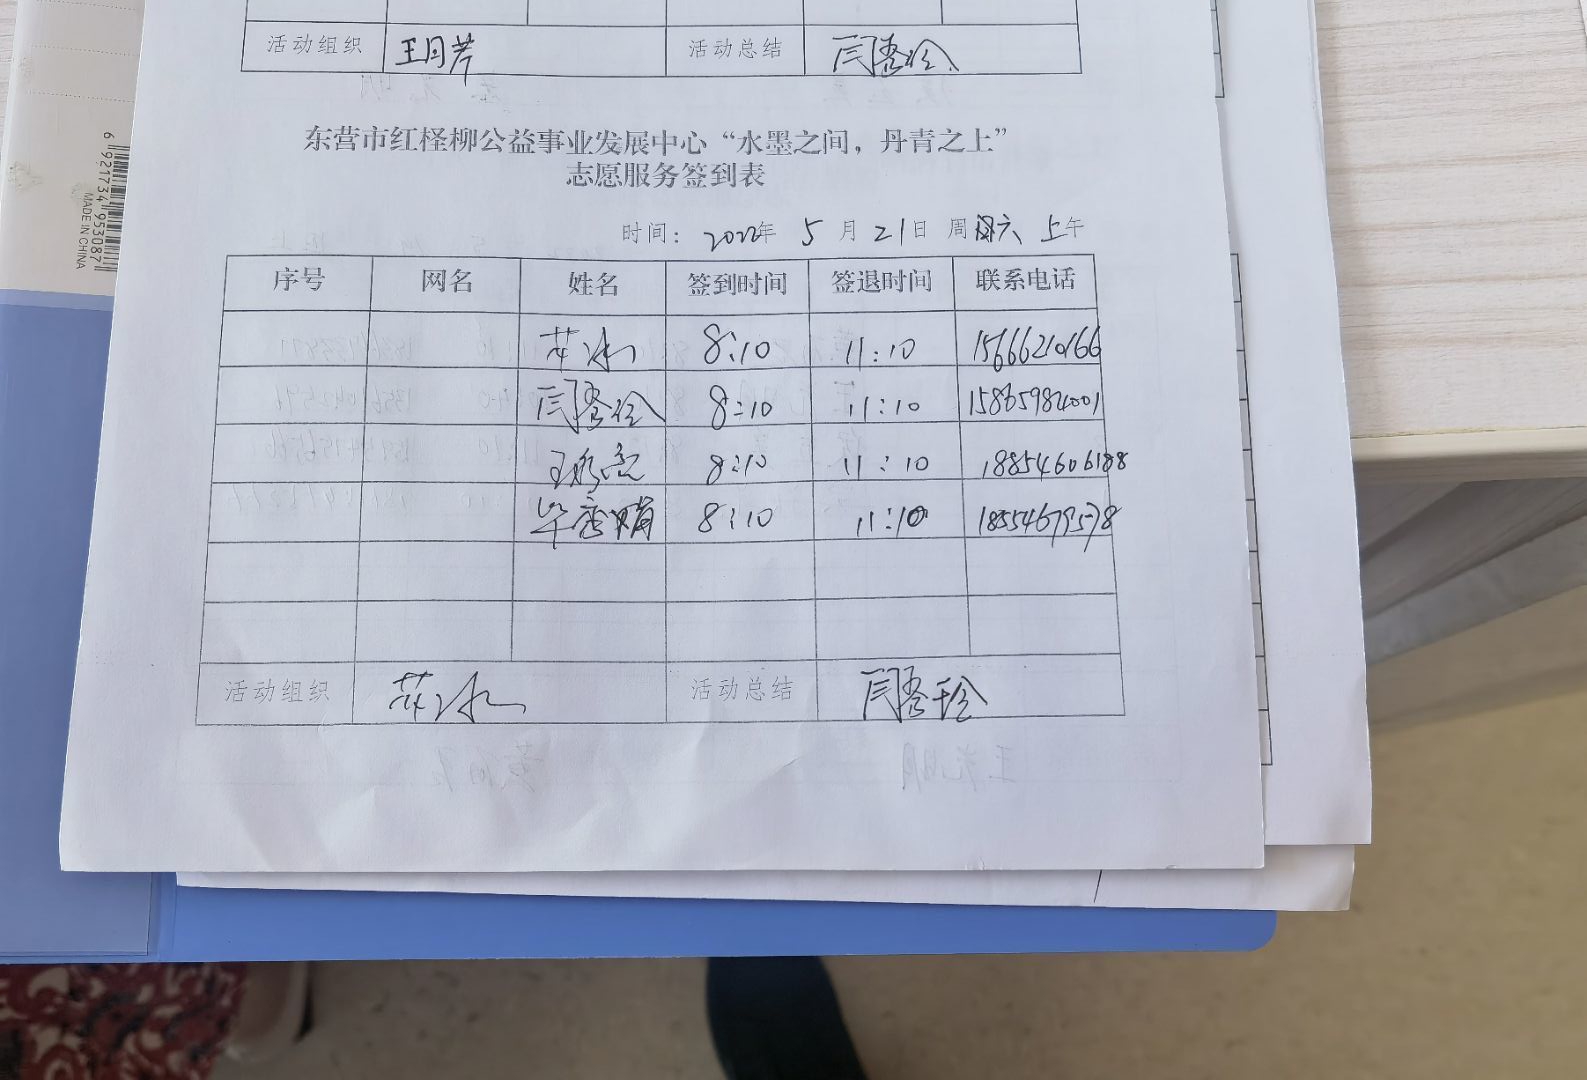 活动组织 王月芹 活动总结
东营市红柽柳公益事业发展中心“水墨之间，丹青之上”
志愿服务签到表
时间：2022年 5 月 21日 周六 上午
序号 网名 姓名 签到时间 签退时间 联系电话
8:10 11:10 15666210166
8:10 11:10 15865984001
8:10 11:10 18854606188
8:10 11:10 18554679578
活动组织 活动总结
6 921734 953087
MADE IN CHINA